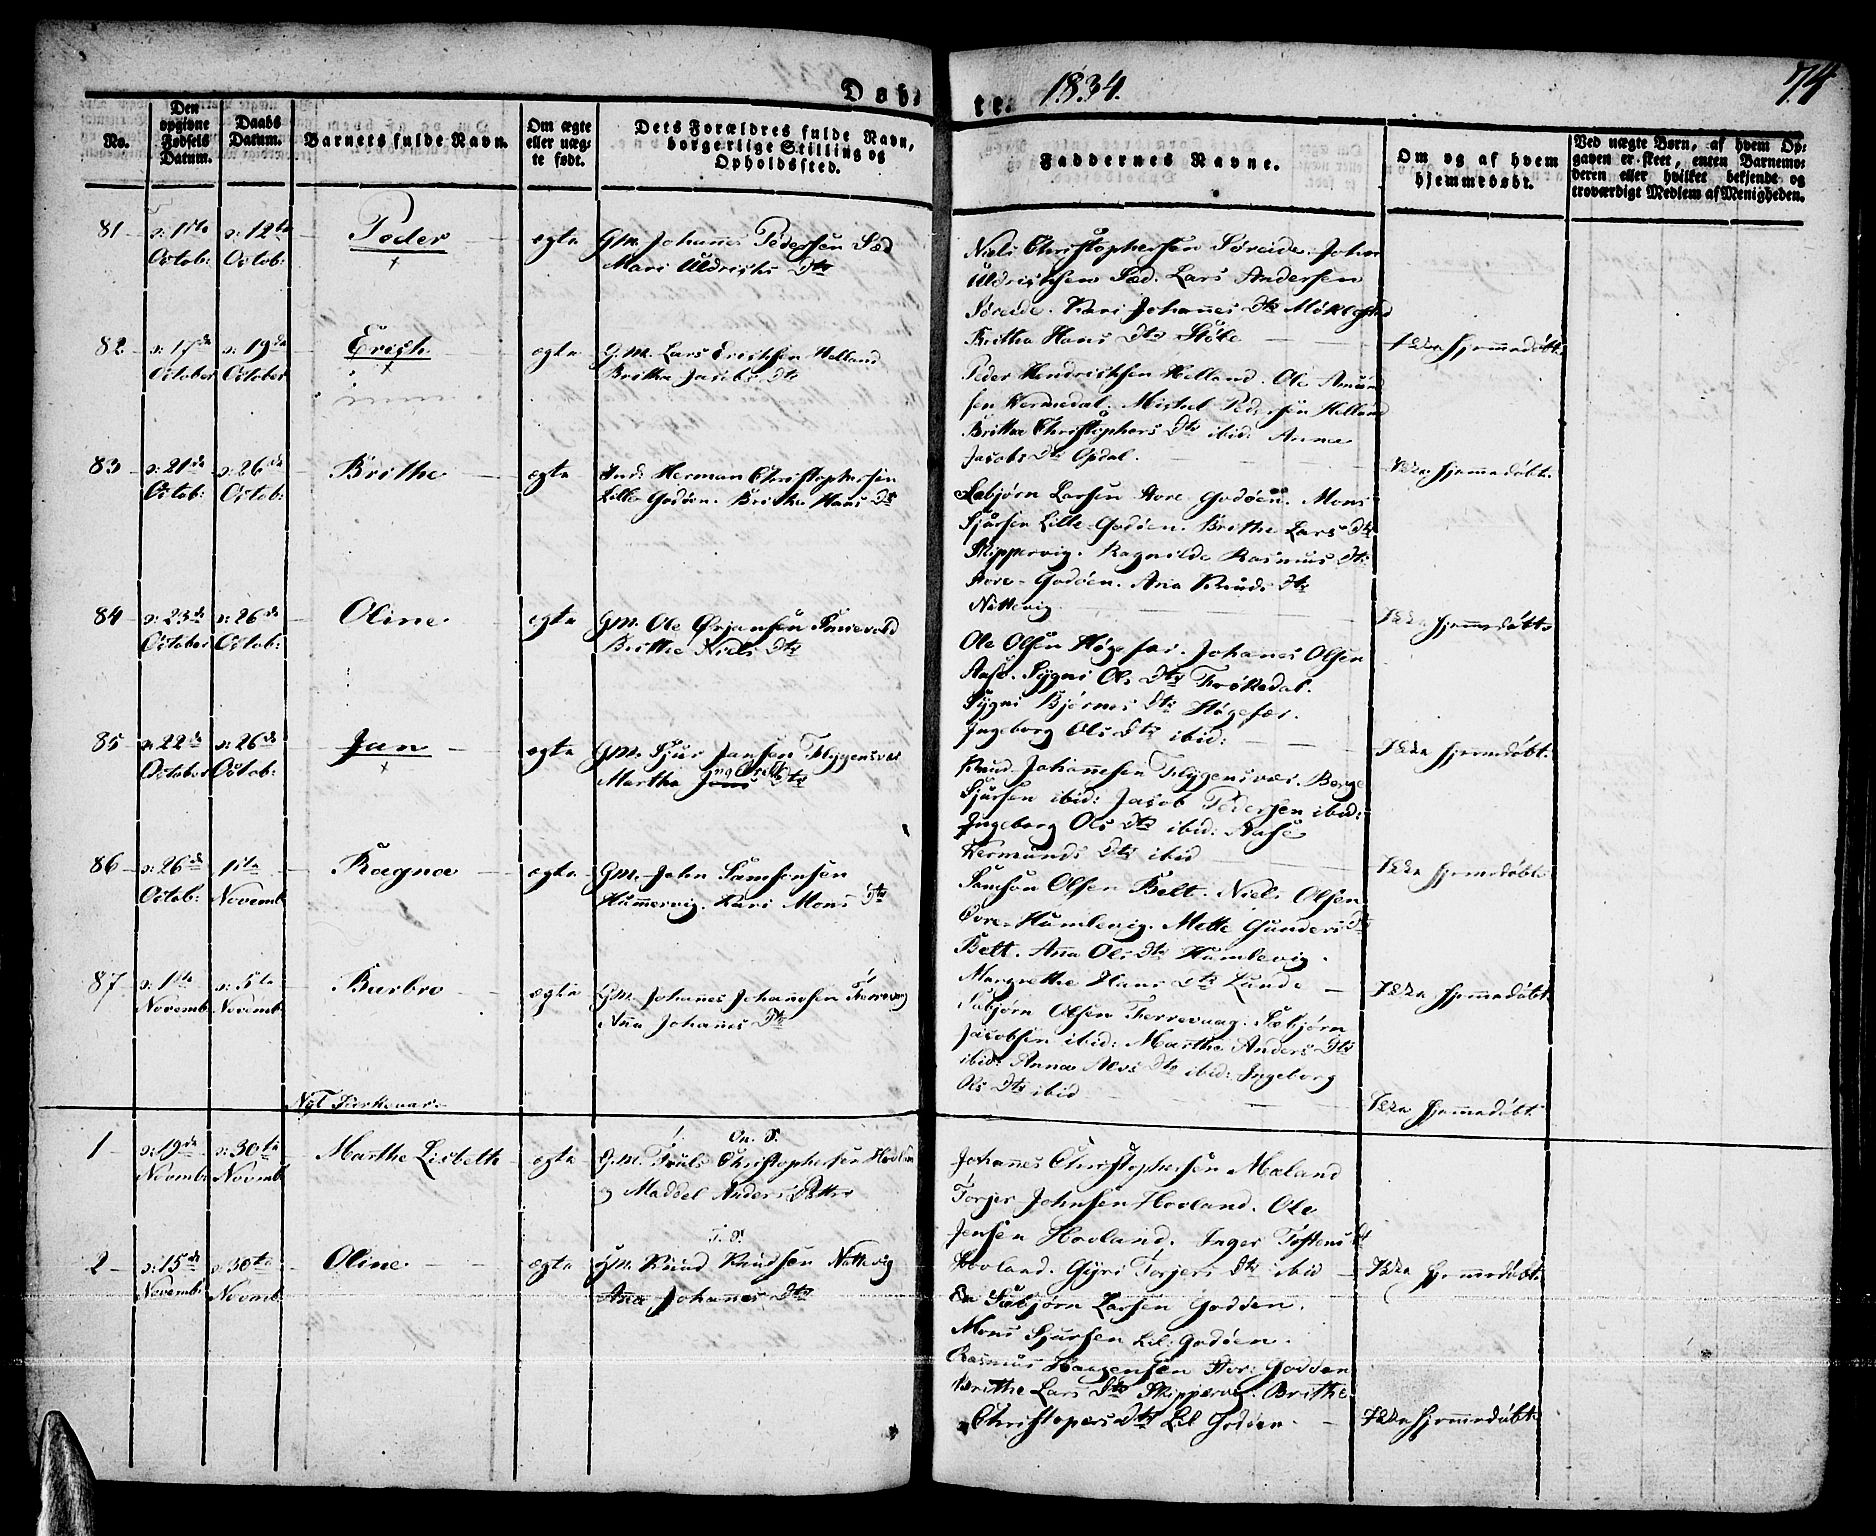 Døbte. 1834. 74
No.
Den opgivne Fødsels Datum.
Daabs Datum.
Barnets fulde Navn.
Om ægte eller uægte født.
Dets Forældres fulde Navn, borgerlige Stilling og Opholdssted.
Faddernes Navne.
Om og af hvem hjemmedøbt.
Ved uægte Børn, af hvem Opgaven er skeet, enten Barnemoderen eller hvilket bekjendt og troværdigt Medlem af Menigheden.
81 d: 11te Octob: d: 12te Octob: Peder ægte Gm. Johannes Pedersen Sæd
Mari Uldrichs Dtr
Niels Christophersen Søreide. John
Uldrichsen Sæd. Lars Andersen
Søreide. Kari Johannes Dtr Møklestad
Britha Hans Dtr Støle
Ikke hjemmedøbt.
82 d: 17de October d: 19de October Erich ægte G.M. Lars Erichsen Helland
Britha Jacobs Dtr
Peder Hendrichsen Helland. Ole Amund
sen Vermedal. Michel Pedersen Helland
Britha Christophers Dtr ibid: Anna
Jacobs Dtr Opdal.
Ikke hjemmedøbt.
83 d: 21de Octob: d: 26de Octob: Brithe ægte Ind: Herman Christophersen
Lille Godøen. Brithe Hans Dtr
Sæbjørn Larsen Store Godøen. Mons
Sjursen Lille-Godøen. Brithe Lars Dtr
Skippervig. Ragnilde Rasmus Dtr
Store-Godøen. Ana Knuds Dtr
Nattevig.
Ikke hjemmedøbt
84 d: 23de October d: 26de Octob: Oline ægte Gm. Ole Ørjansen
Brithe Niels Dtr
Ole Olsen Høgefær. Johanes Olsen
Aase. Sygni Ols Dtr Frøkedal.
Sygni Bjørnes Dtr Høgefær.
Ingeborg Ols Dtr ibid:
Ikke hjemmedøbt.
85 d: 22de October d: 26de Octob: Jan ægte Gm. Sjur Jansen Flygensvær
Martha Dtr
Knud Johannesen Flygensvær. Berge
Sjursen ibid: Jacob Pedersen ibid:
Ingeborg Ols Dtr ibid: Aase
Vermunds Dtr ibid
Ikke hjemmedøbt.
86 d: 26de Octob: 1ste Novemb Ragna ægte Gm. John Samsonsen
Hammervig. Kari Mons Dtr
Samson Olsen Belt. Niels Olsen
Øvre-Humlevig. Mette Gunders Dtr
Belt. Anna Ols Dtr Humlevig.
Margrethe Hans Dtr Lunde
Ikke hjemmedøbt.
87 d: 1te Novemb d: 5te Novemb Barbro ægte Gm. Johannes Johannesen Færrevaag
Anna Johannes Dtr
Sæbjørn Olsen Ferrevaag. Sæbjørn
Jacobsen ibid: Marthe Anders Dtr
ibid: Anna Dtr ibid: Ingeborg
Ols Dtr ibid
Ikke hjemmedøbt.
Nyt Kirkeaar
1 d: 19de Novemb d: 30te Novemb Marthe Lisbeth ægte G.M. Truls Christophersen Hovland
og Maddel Anders Datter
Johannes Christophersen Mæland
Torjer Johnsen Hovland. Ole
Jensen Hovland. Inger Tostens Dtr
Hovland. Gyri Torjers Dtr ibid
Ikke hjemmedøbt
2 d: 15de Novemb: d: 30te Novemb Oline ægte Gm. Knud Knudsen Nattevig
Ana Johannes Dtr
Sæbjørn Larsen Godøen.
Mons Sjursen Lil: Godøen.
Rasmus Haagensen Stor: Godøen
Brithe Lars Dtr Skippervig. Brithe
Christopers Dtr Lil Godøen.
Ikke hjemmedøbt